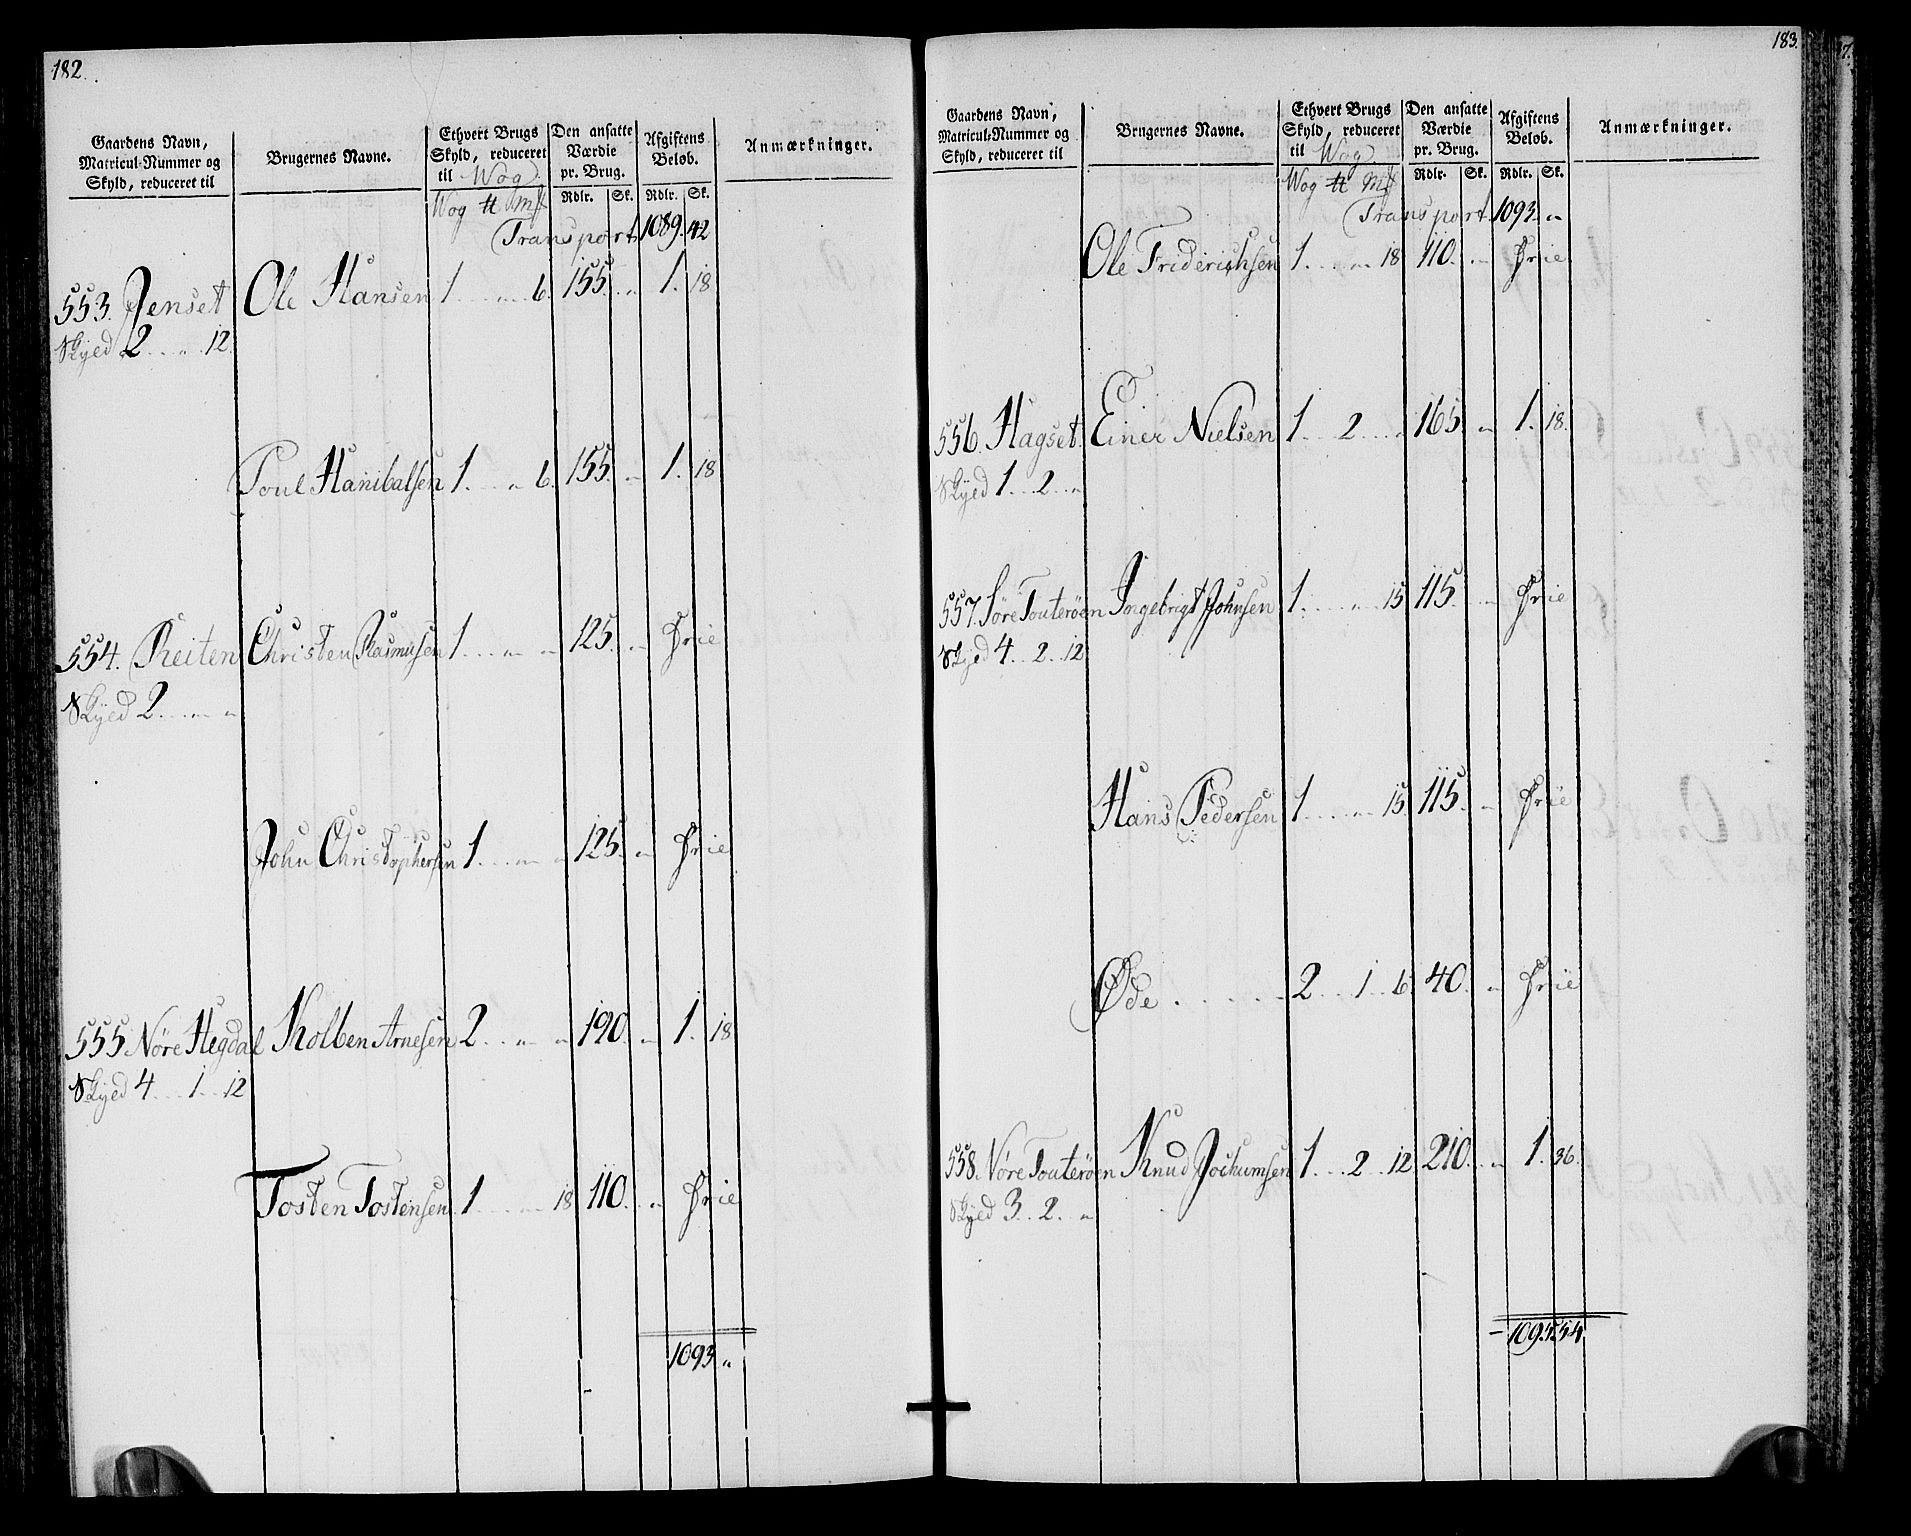 182.
Gaardens Navn, Matricul-Nummer og Skyld, reduceret til
Brugernes Navne.
Ethvert Brugs Skyld, reduceret til Wog
Den ansatte Værdie pr. Brug.
Afgiftens Beløb.
Anmærkninger.
Wog ℔ Mſ Rdlr. Sk. Rdlr. Sk.
Transport 1089. 42
553. Jenset Ole Hansen 1 . . „ . . 6. 155. „ 1. 18
Skyld 2 . . „ . . 12.
Poul Hanibalsen 1 . . „ 6. 155. „ 1. 18
554. Reiten Christen Rasmusen 1 . . „ „ 125. „ Frie
Skyld 2 . . „ „
John Christophersen 1 . . „ „ 125. „ Frie
555 Nøre Hegdal Kolben Arnesen 2 . . „ „ 190. „ 1. 18
Skyld 4 . . 1 . . 12
Tosten Tostensen 1 . . „ 18 110. „ Frie
1093 „
183.
Gaardens Navn, Matricul-Nummer og Skyld, reduceret til
Brugernes Navne.
Ethvert Brugs Skyld, reduceret til Wog
Den ansatte Værdie pr. Brug.
Afgiftens Beløb.
Anmærkninger.
Wog ℔ Mſ Rdlr. Sk. Rdlr. Sk.
Transport 1093. „
Ole Friderichsen 1 . . „ 18 110. „ Frie
556. Hagset Einer Nielsen 1 . . 2 . . „ 165. „ 1. 18.
Skyld 1 . . 2 . . „
557. Søre Touterøen Ingebrigt Johnsen 1 . . „ 15 115. „ Frie
Skyld 4 . . 2 . . 12
Hans Pedersen 1 . . „ 15. 115. „ Frie
Øde . . . . . 2 . . 1 . . 6. 40. „ Frie
558. Nøre Touterøen Knud Jochumsen 1 . . 2 . . 12 210. „ 1. 36.
Skyld 3 . . 2 . . „
1095. 54